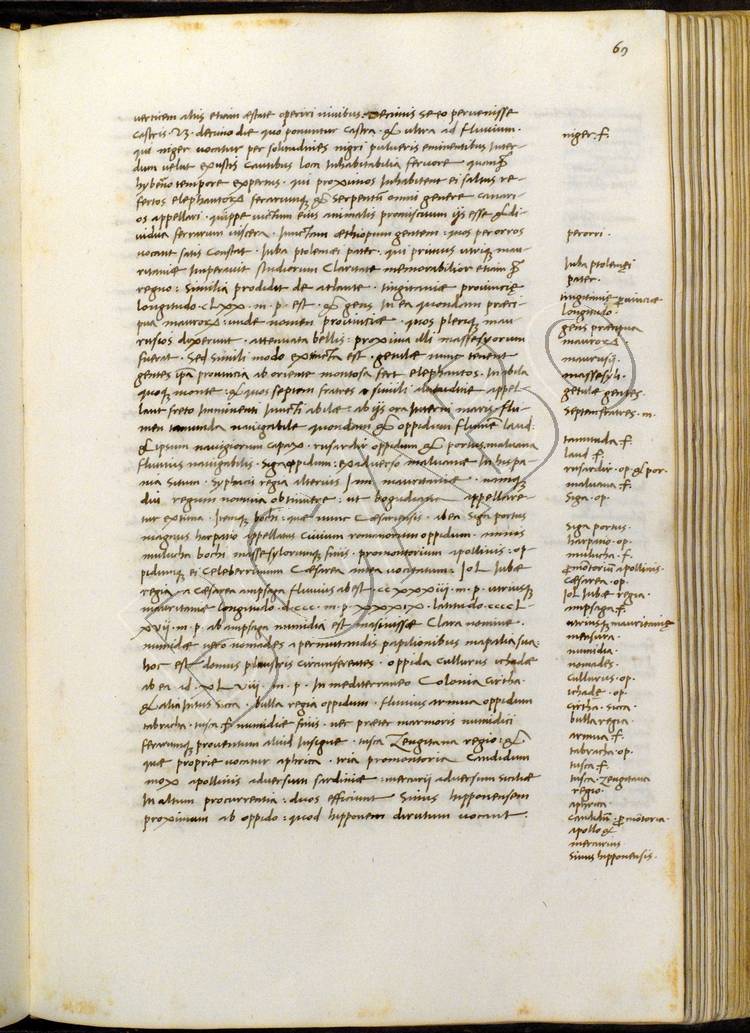 69
verticem altis etiam æstate operiri nivibus. Decimis se eo pervenisse
castris. &. decimo die quo ponuntur castra. & ultra ad fluvium.
qui niger vocatur per solitudines nigri pulveris eminentibus inter-
dum velut exustis cautibus loca inhabitabilia fervore quamq̃
hyberno tempore expertus. qui proximos inhabitent ei saltus re-
fertos elephantoꝝ ferarumq; & serpentũ omni genere canari-
os appellari. quippe victum eius animalis promiscuum ijs esse & di-
vidua ferrarum viscera. Junctam æthiopum gentem: quos perorros
vocant satis constat. Iuba ptolemei pater. qui primus utriq; mau-
ritaniæ imperavit studiorum claritate memorabilior etiam q̃
regno: similia prodidit de atlante. tingitaniæ provinciæ
longitudo. CLXX. m. p. est. & gens in ea quondam præci-
pua mauroꝝ: unde nomen provinciæ. quos pleriq; mau-
rusios dixerunt. attenuata bellis: proxima illi massesylorum
fuerat. Sed simili modo extincta est. getulæ nunc tenent
gentes ipsa provincia ab oriente montosa fert elephantos. In abila
quoq; monte: & quos septem fratres a simili altitudine appel-
lant freto imminenti iuncti abilæ. ab ijs ora interni maris flu-
men tamunda navigabile quondam & oppidum flumẽ laud:
& ipsum navigiorum capax. rusardir oppidum & portus. maluana
fluvius navigabilis. Siga oppidum: ex adverso malacæ in hispa-
nia situm. Syphacis regia alterius iam mauritaniæ. namq;
diu regum nomina obtinuere: ut bogudiana appellare-
tur extima. Itemq; bochi: quæ nunc Cæsariensis. ab ea siga portus
magnus harpario appellatus civium romanorum oppidum. amnis
mulucha bochi massesylorumq; finis. promontorium apollinis. op-
pidumq; ei celeberrimum Cæsarea antea vocitatum: JoL Iubæ
regia a Cæsarea ampsaga fluvius abest. ccxxxiii. m. p. utriusq;
mauritaniæ longitudo. dcccc. m. p. XXXIX. latitudo. ccccL-
xvij. m. p. ab ampsaga numidia est masinissæ clara nomine.
numidæ vero nomades a permutandis papilionibus mapalia sua:
hoc est domus plaustris circumferentes. oppida cullurus ichadæ
ab ea ad. XLviij. m. p. In mediterraneo Colonia cirtha.
& alia intus sicca. bulla regia oppidum. fluvius armua oppidum
tabracha. tusca fl. numidiæ finis. nec præter marmoris numidici
ferarumq; proventum aliud insigne. tusca zengitana regio: &
quæ proprie vocatur aphrica. tria promontoria candidum
mox apollinis adversum sardiniæ: mercurij adversum siciliæ
In altum procurrentia: duos efficiunt Sinus hipponensem
proximum ab oppido: quod hipponem dirutum vocant.
niger. f.
perorri.
Iuba ptolemei
pater.
tingitaniæ provinciæ
longitudo.
gens præcipua
mauroꝝ.
maurusij.
massesyli.
getulæ gentes.
septem fratres. m.
tamunda. f.
laud f.
rusardir. op. & por.
maluana f.
siga. op.
siga portus.
harpario. op.
mulucha. f.
promõtoriũ apollinis.
cæsarea. op.
Jol Iubæ regia.
ampsaga f.
utriusq; mauritaniæ
mensura.
numidia.
nomades.
cullurus. op.
ichadæ. op.
cirtha. sicca.
bulla regia.
armua. f.
tabracha. op.
tusca. f.
tusca. zengitana
regio.
aphrica
candidũ. promõtoria.
apollo &
mercurius
Sinus hipponensis.